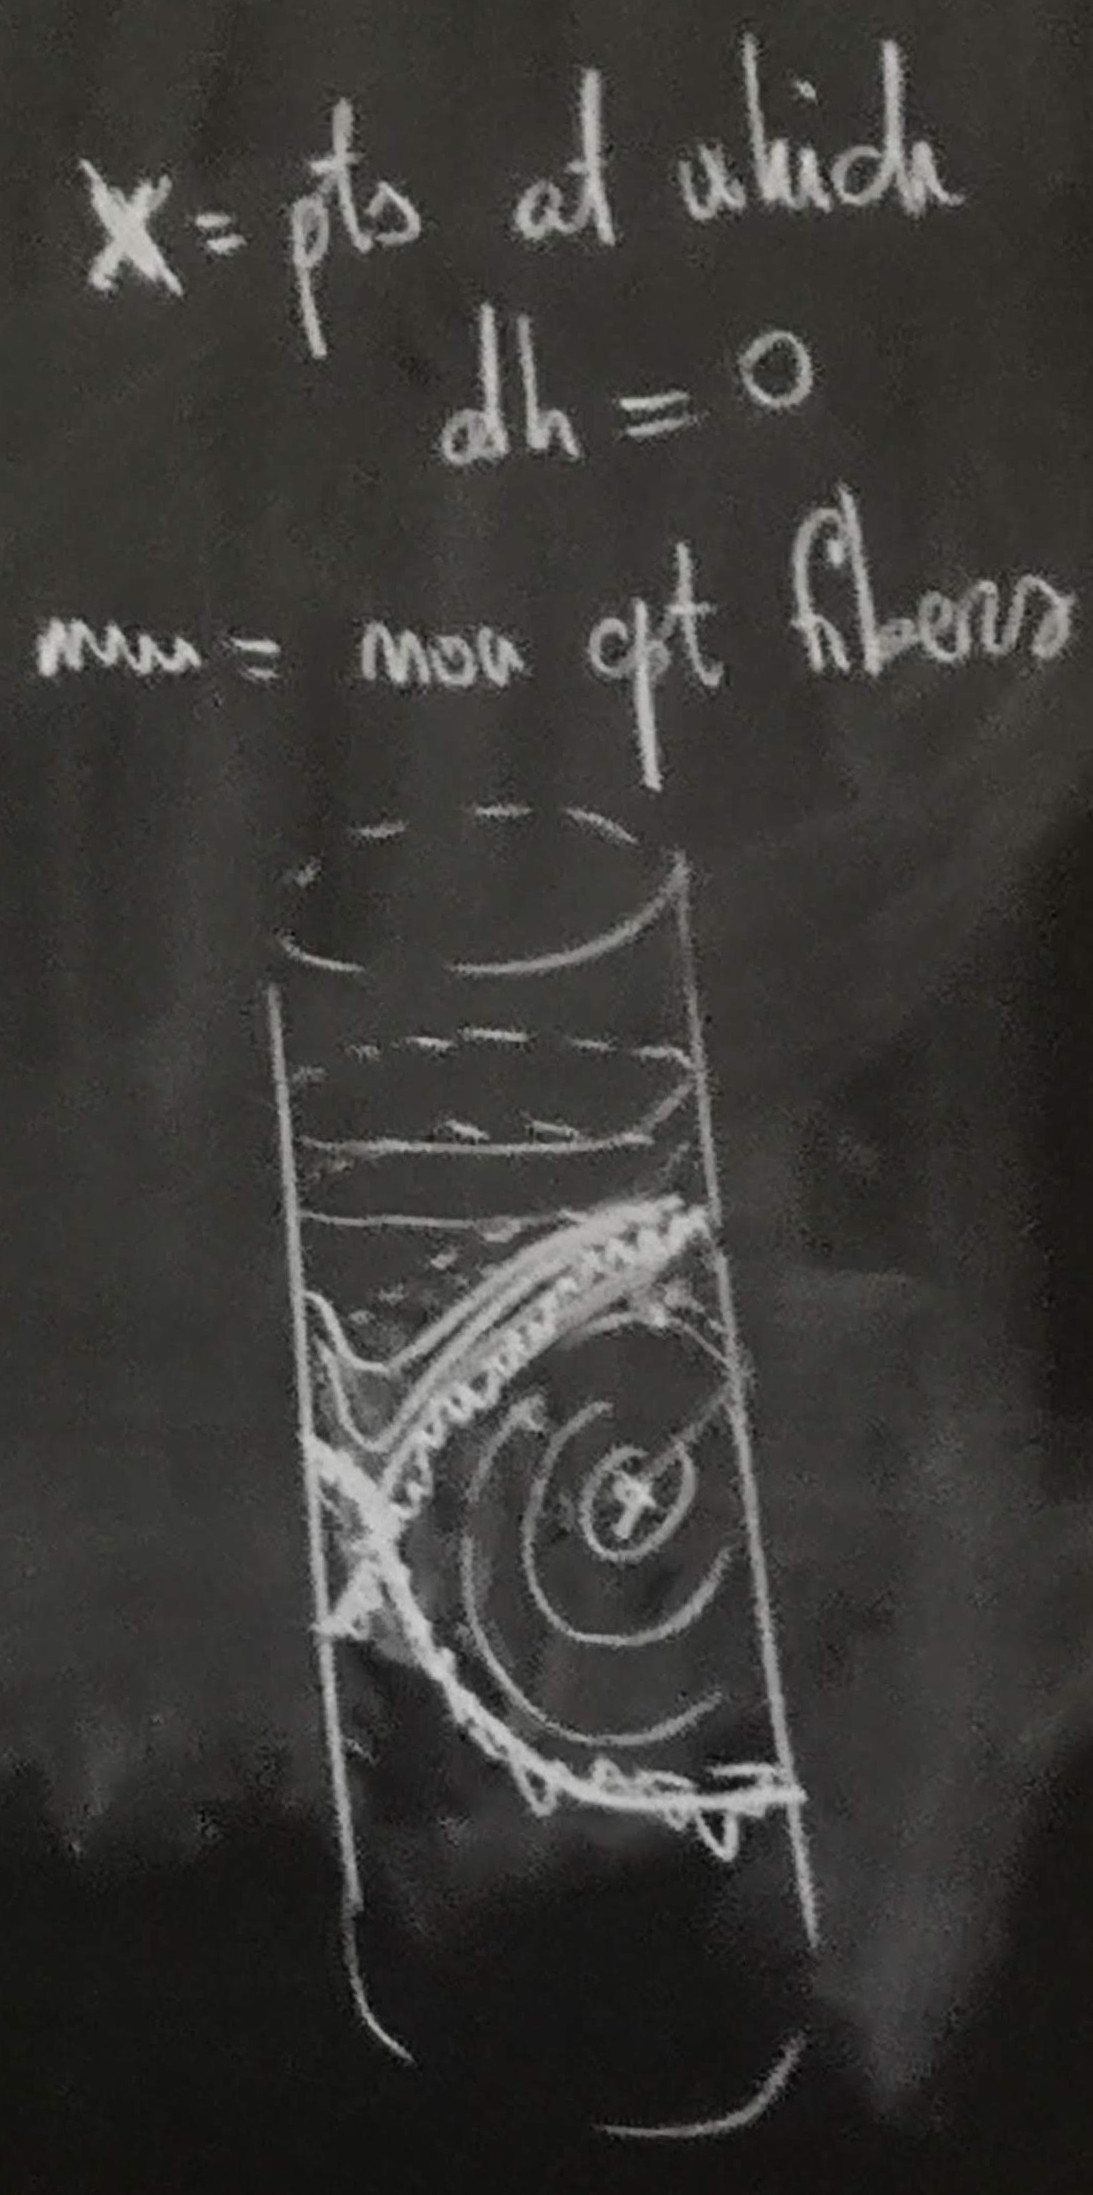 X = pts at which
dh = 0
= non cpt fibers